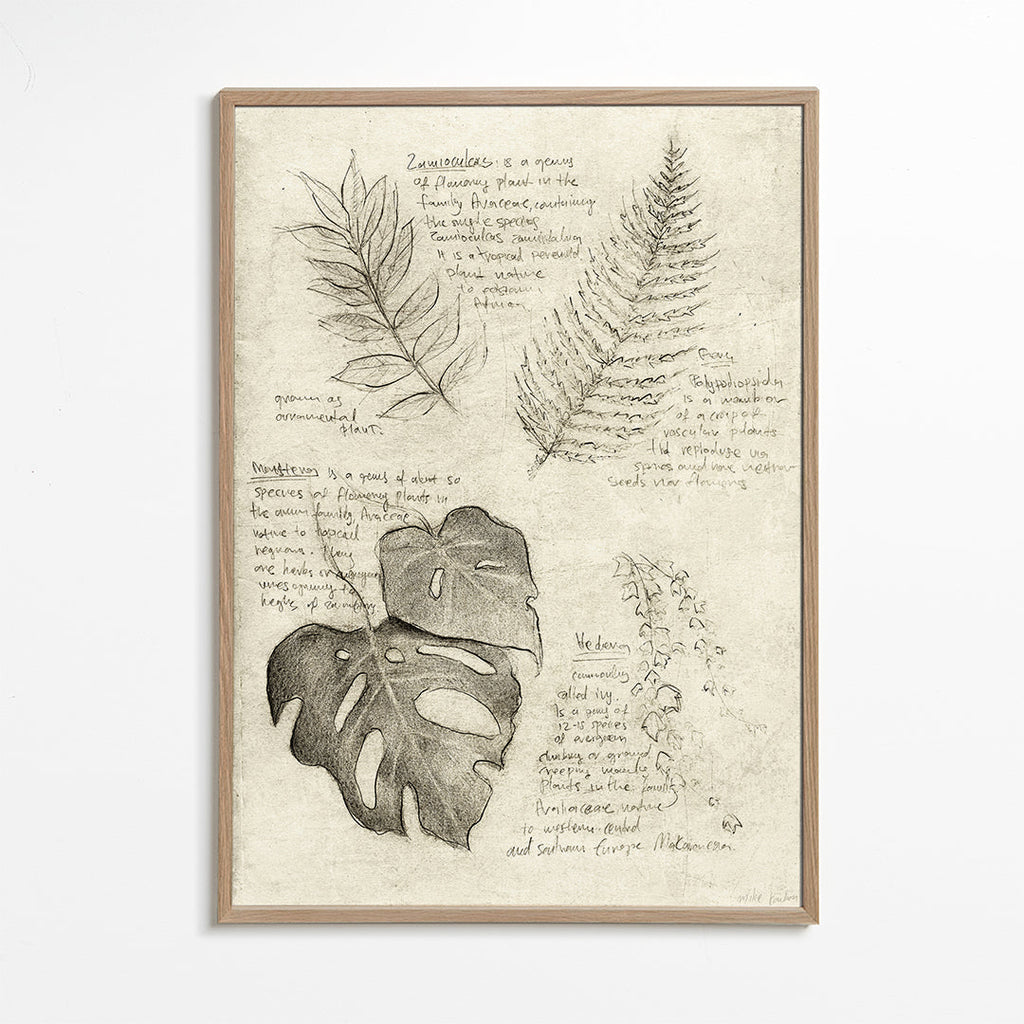 Zamioculcas: is a genus
of flowering plant in the
family Araceae, containing
the single species
Zamioculcas
It is a tropical perennial
plant native
to
grown as
ornamental
plant.
is a member
of a group of
vascular plants
that reproduce via
spores and have neither
seeds nor flowers
Monstera is a genus of about 50
species of flowering plants in
the arum family, Araceae
native to tropical
regions. They
are herbs or evergreen
vines
commonly
called ivy.
Is a genus of
12-15 species
of evergreen
climbing or ground
creeping
plants in the family
Araliaceae, native
to western, central
and southern Europe
mike